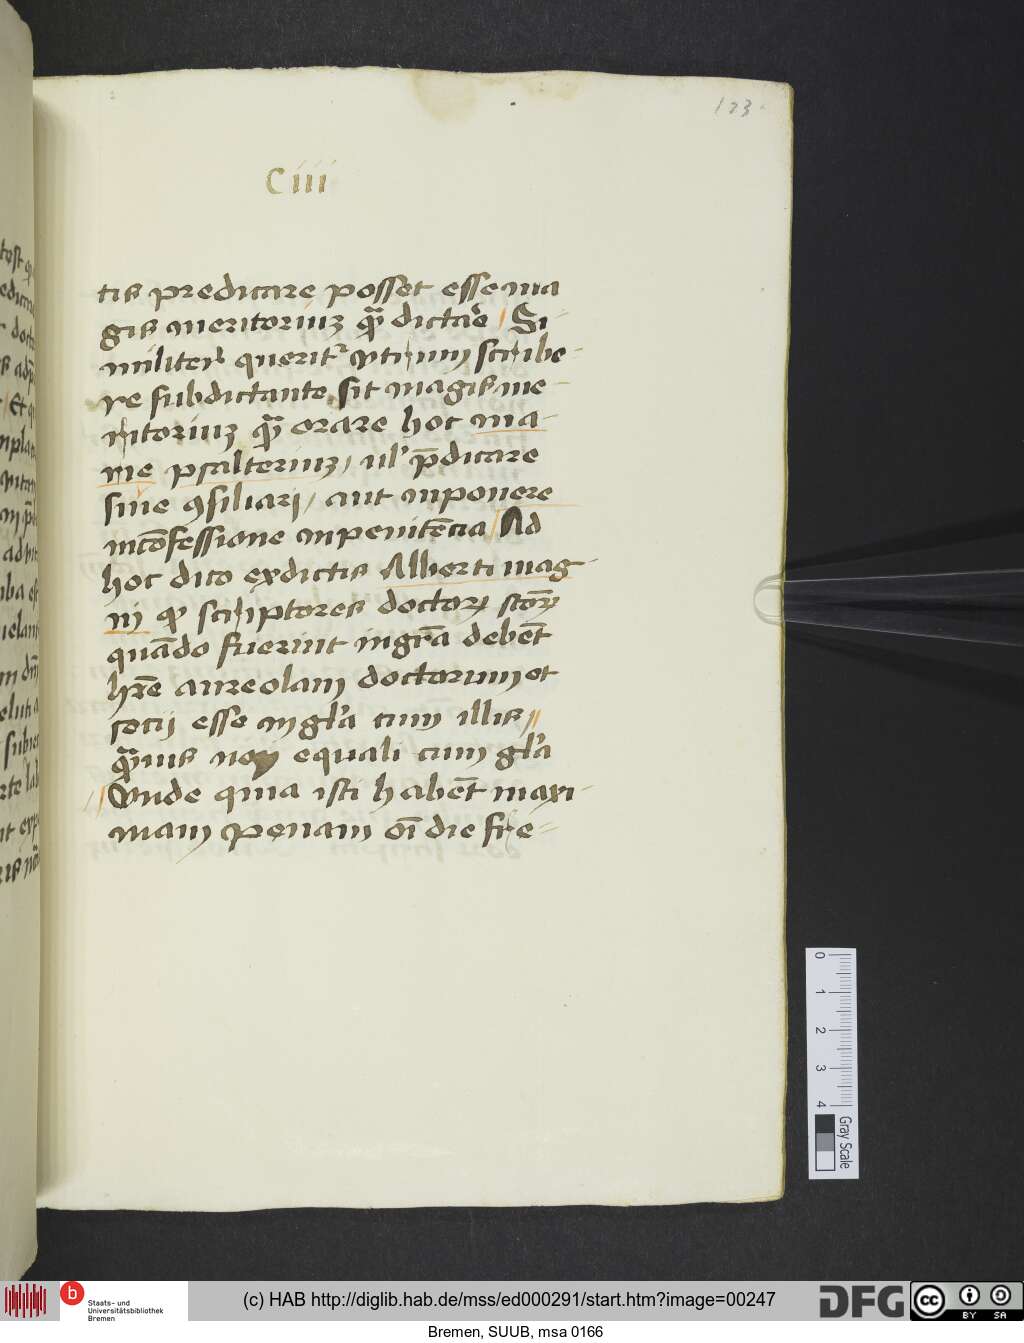 123
C iii
tis predicare posset esse ma
gis meritoriuz qua dictare / Si-
militer querit vtrum scribe-
re subdictante sit magis me-
ritoriuz qua orare hoc ma-
rie psalteriuz / ul' p̄dicare
siue ꝯsiliari / aut inponere
incōfessione inpenitēcia / Ad
hoc dico exdictis Alberti mag-
ni qꝫ scriptores doctorꝝ scōrꝝ
quādo fuerint ingrā a debēt
hr̄e aureolam doctorum et
socij esse in gl'a cum illis //
quāuis non equali cum gl'a
// Vnde quia isti habēt maxi-
mam penam oī die fre-
0
1
2
3
4
Gray Scale
b
Staats- und
Universitätsbibliothek
Bremen
(c) HAB http://diglib.hab.de/mss/ed000291/start.htm?image=00247
DFG
cc
BY SA
Bremen, SUUB, msa 0166